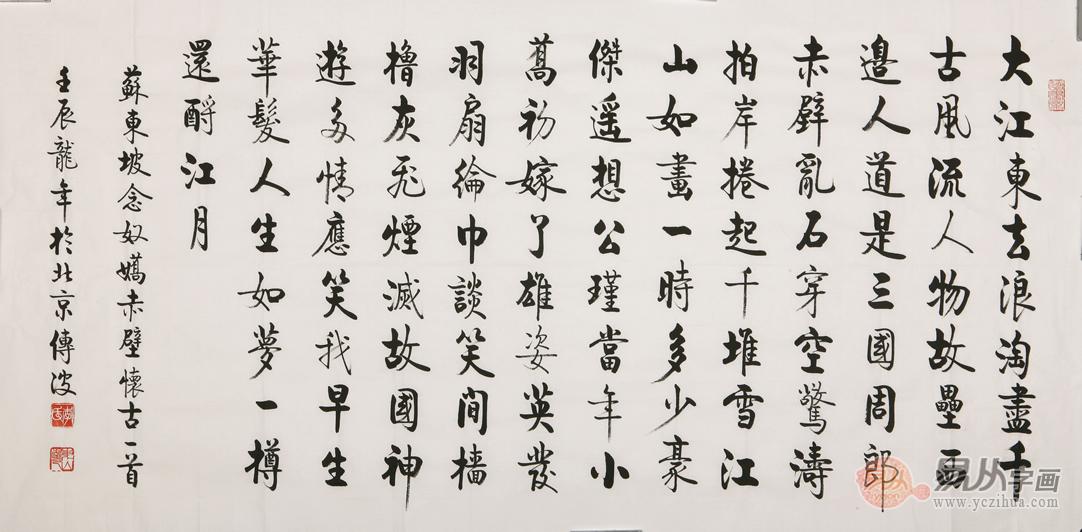 大江東去浪淘盡千
古風流人物故壘西
邉人道是三國周郎
赤壁亂石穿空驚濤
拍岸捲起千堆雪江
山如畫一時多少豪
傑遥想公瑾當年小
喬初嫁了雄姿英發
羽扇綸巾談笑間檣
櫓灰飛煙滅故國神
遊多情應笑我早生
華髮人生如夢一樽
還酹江月
蘇東坡念奴嬌赤壁懷古一首
壬辰龍年於北京傳波
易从字画
www.yczihua.com